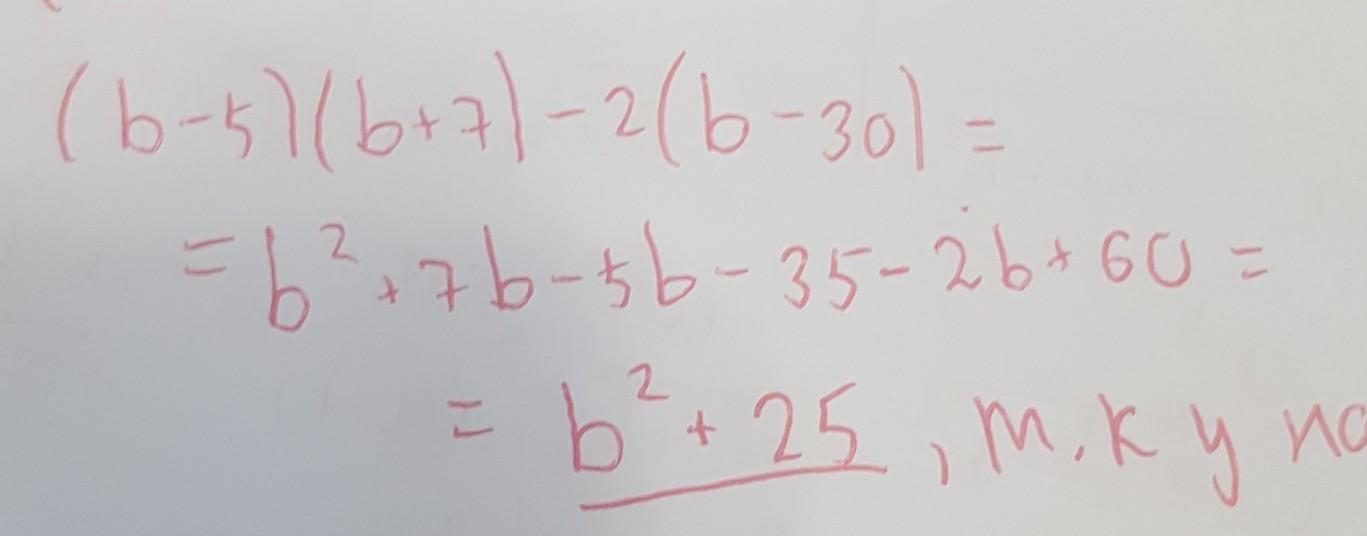 (b-5)(b+7)-2(b-30)=
=b²+7b-5b-35-2b+60=
=b²+25, т.к у